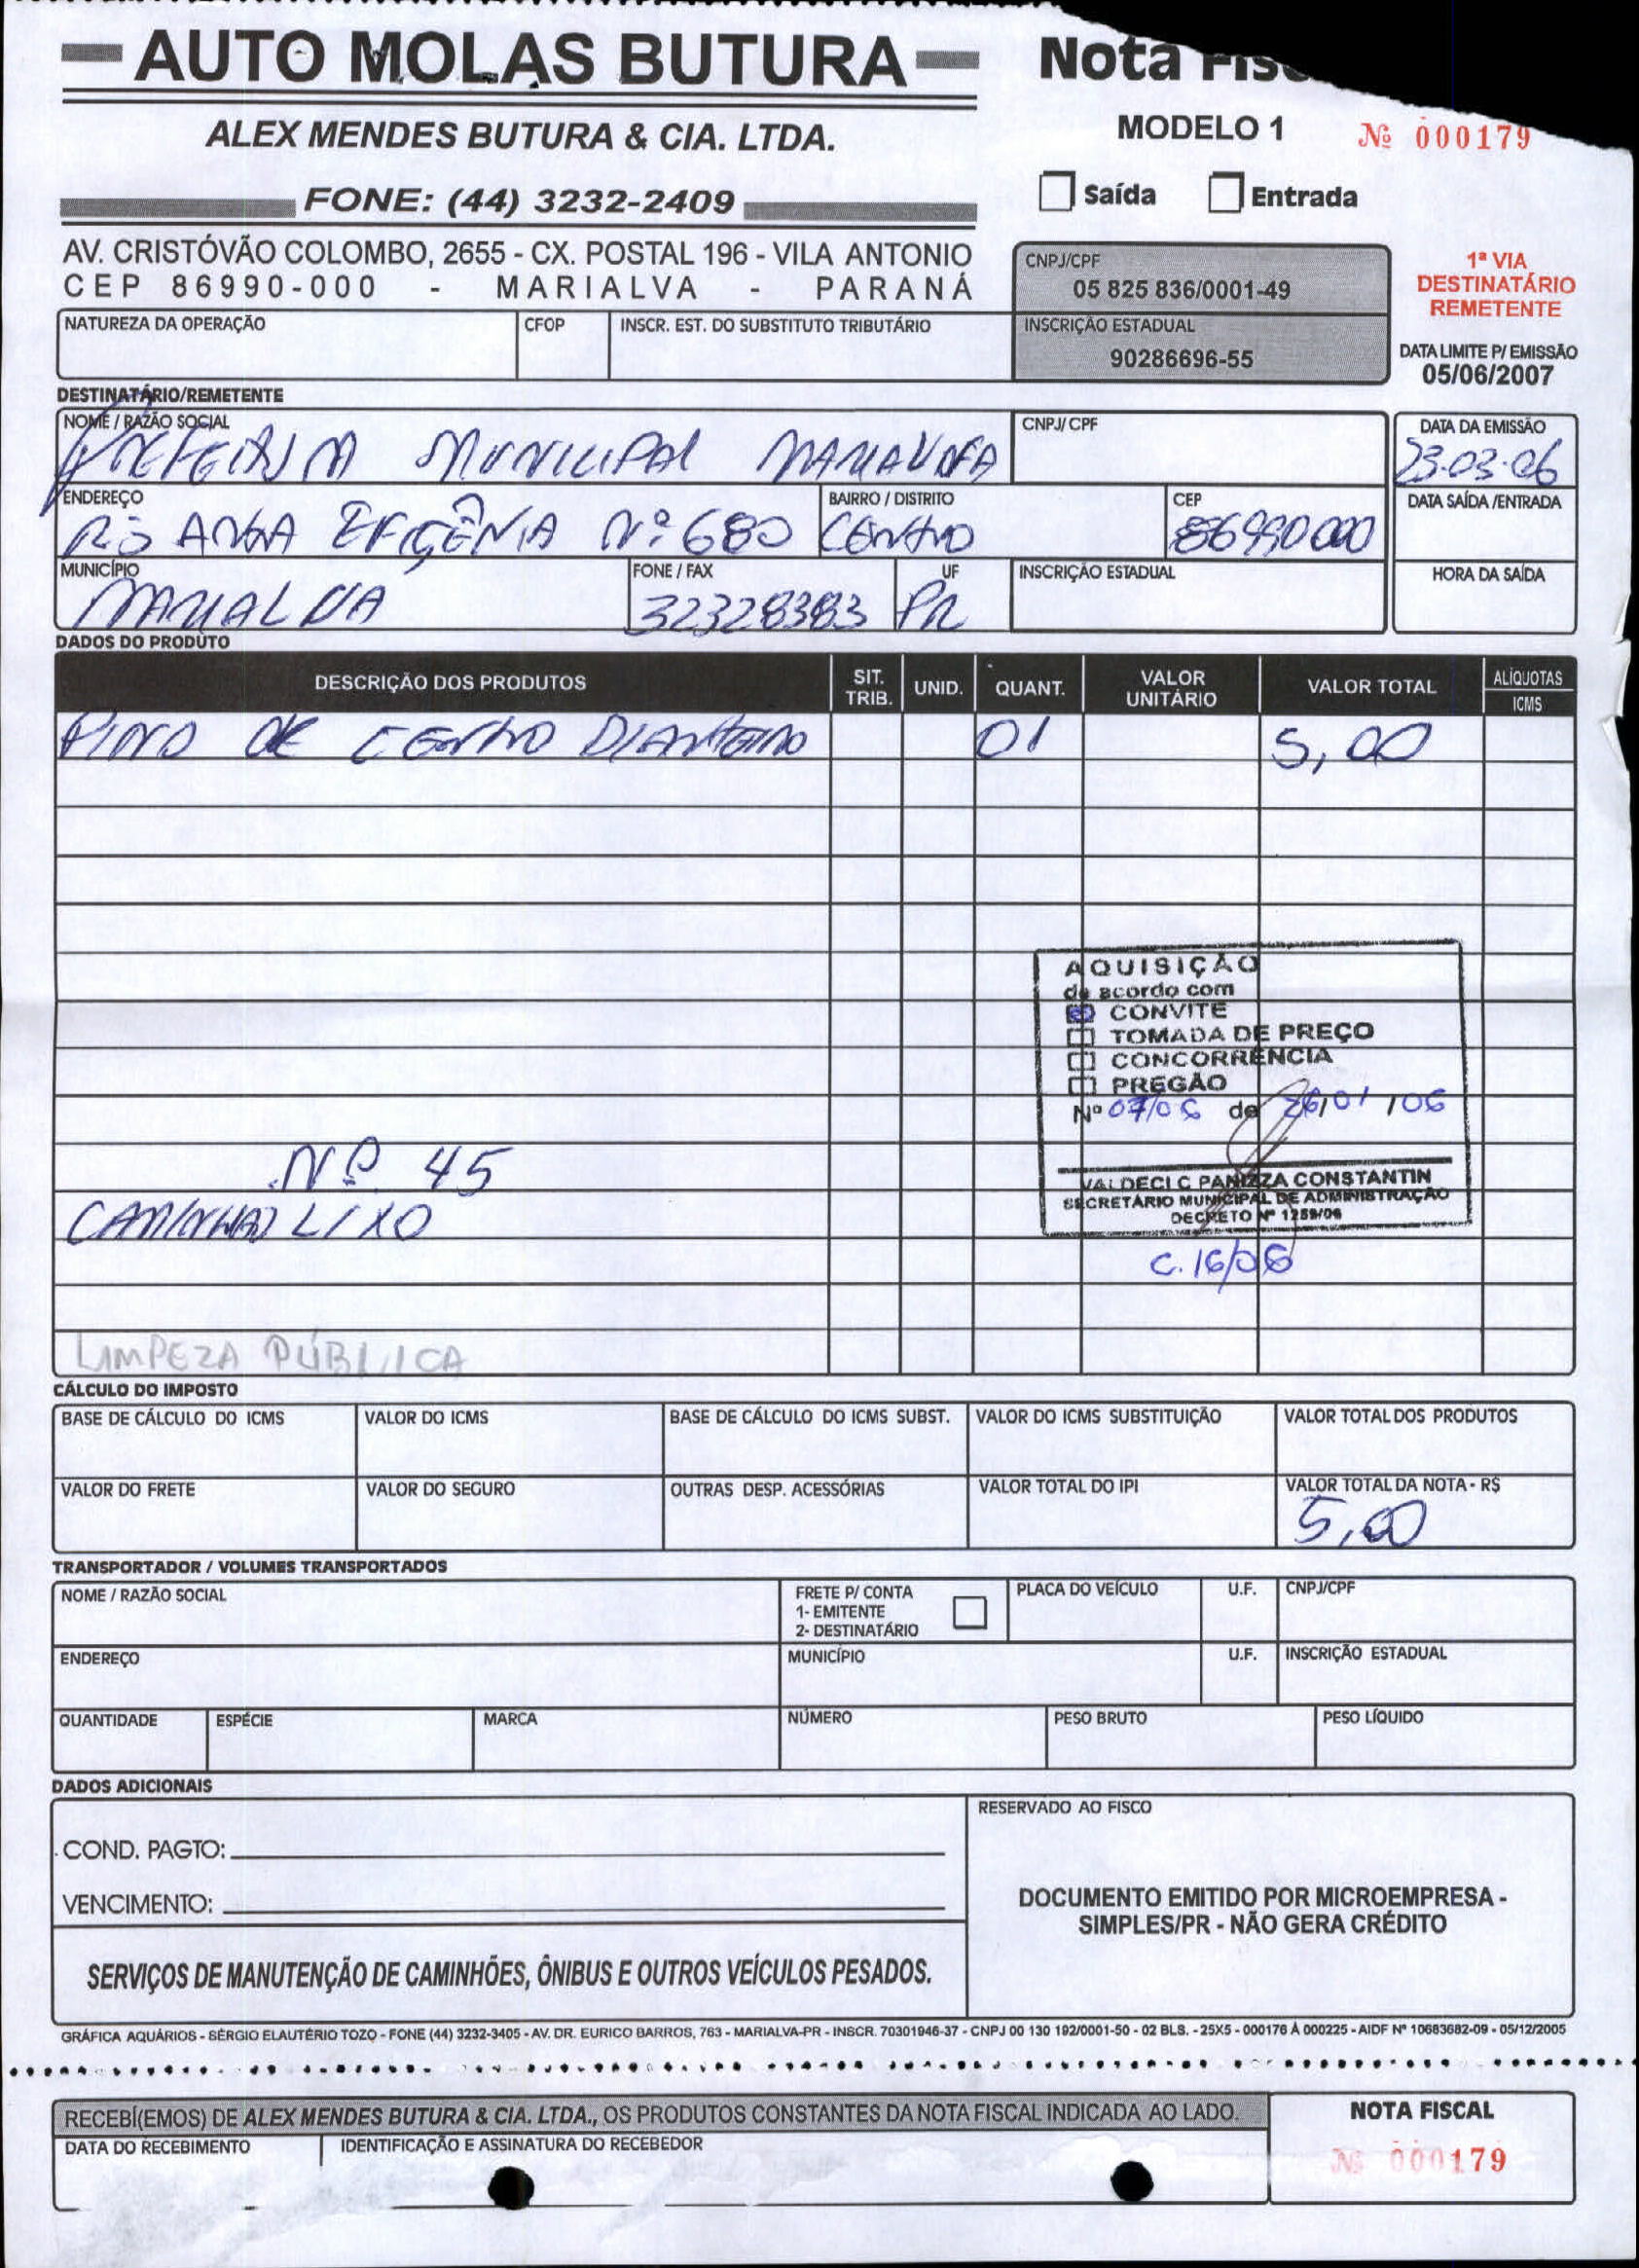 AUTO MOLAS BUTURA
Nota Fisc
ALEX MENDES BUTURA & CIA. LTDA.
MODELO 1 Nº 000179
FONE: (44) 3232-2409
Saída Entrada
AV. CRISTÓVÃO COLOMBO, 2655 - CX. POSTAL 196 - VILA ANTONIO
CEP 86990-000 - MARIALVA - PARANÁ
CNPJ/CPF
05 825 836/0001-49
INSCRIÇÃO ESTADUAL
90286696-55
1ª VIA
DESTINATÁRIO
REMETENTE
DATA LIMITE P/ EMISSÃO
05/06/2007
NATUREZA DA OPERAÇÃO CFOP INSCR. EST. DO SUBSTITUTO TRIBUTÁRIO
DESTINATÁRIO/REMETENTE
NOME / RAZÃO SOCIAL CNPJ/ CPF DATA DA EMISSÃO
MUNICIPAL 23.03.06
ENDEREÇO BAIRRO / DISTRITO CEP DATA SAÍDA /ENTRADA
Nº 680 CENTRO 86990000
MUNICÍPIO FONE / FAX UF INSCRIÇÃO ESTADUAL HORA DA SAÍDA
MARIALVA 32328383 PR
DADOS DO PRODUTO
DESCRIÇÃO DOS PRODUTOS SIT. TRIB. UNID. QUANT. VALOR UNITÁRIO VALOR TOTAL ALÍQUOTAS ICMS
PINO DE CENTRO DIANTEIRO 01 5,00
AQUISIÇÃO
de acordo com
CONVITE
TOMADA DE PREÇO
CONCORRÊNCIA
PREGÃO
Nº 07/06 de 26/01/06
VALDECI C PANIZZA CONSTANTIN
SECRETÁRIO MUNICIPAL DE ADMINISTRAÇÃO
DECRETO Nº 1259/06
C. 16/06
Nº 45
CAMINHÃO LIXO
LIMPEZA PÚBLICA
CÁLCULO DO IMPOSTO
BASE DE CÁLCULO DO ICMS VALOR DO ICMS BASE DE CÁLCULO DO ICMS SUBST. VALOR DO ICMS SUBSTITUIÇÃO VALOR TOTAL DOS PRODUTOS
VALOR DO FRETE VALOR DO SEGURO OUTRAS DESP. ACESSÓRIAS VALOR TOTAL DO IPI VALOR TOTAL DA NOTA - R$
5,00
TRANSPORTADOR / VOLUMES TRANSPORTADOS
NOME / RAZÃO SOCIAL FRETE P/ CONTA PLACA DO VEÍCULO U.F. CNPJ/CPF
1- EMITENTE
2- DESTINATÁRIO
ENDEREÇO MUNICÍPIO U.F. INSCRIÇÃO ESTADUAL
QUANTIDADE ESPÉCIE MARCA NÚMERO PESO BRUTO PESO LÍQUIDO
DADOS ADICIONAIS
RESERVADO AO FISCO
COND. PAGTO:
VENCIMENTO:
DOCUMENTO EMITIDO POR MICROEMPRESA -
SIMPLES/PR - NÃO GERA CRÉDITO
SERVIÇOS DE MANUTENÇÃO DE CAMINHÕES, ÔNIBUS E OUTROS VEÍCULOS PESADOS.
GRÁFICA AQUÁRIOS - SÉRGIO ELAUTÉRIO TOZO - FONE (44) 3232-3405 - AV. DR. EURICO BARROS, 763 - MARIALVA-PR - INSCR. 70301946-37 - CNPJ 00 130 192/0001-50 - 02 BLS. - 25X5 - 000176 À 000225 - AIDF Nº 10683682-09 - 05/12/2005
RECEBÍ(EMOS) DE ALEX MENDES BUTURA & CIA. LTDA., OS PRODUTOS CONSTANTES DA NOTA FISCAL INDICADA AO LADO.
NOTA FISCAL
DATA DO RECEBIMENTO IDENTIFICAÇÃO E ASSINATURA DO RECEBEDOR
Nº 000179